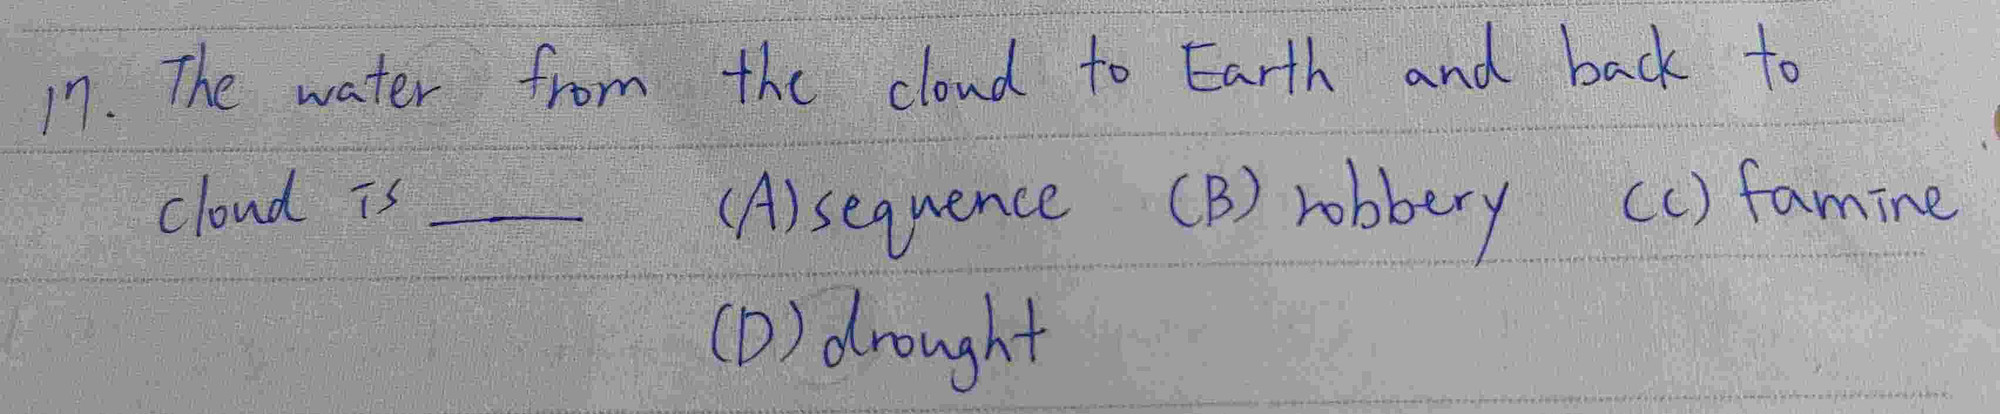 17. The water from the cloud to Earth and back to
cloud is ____ (A) sequence (B) robbery (C) famine
(D) drought